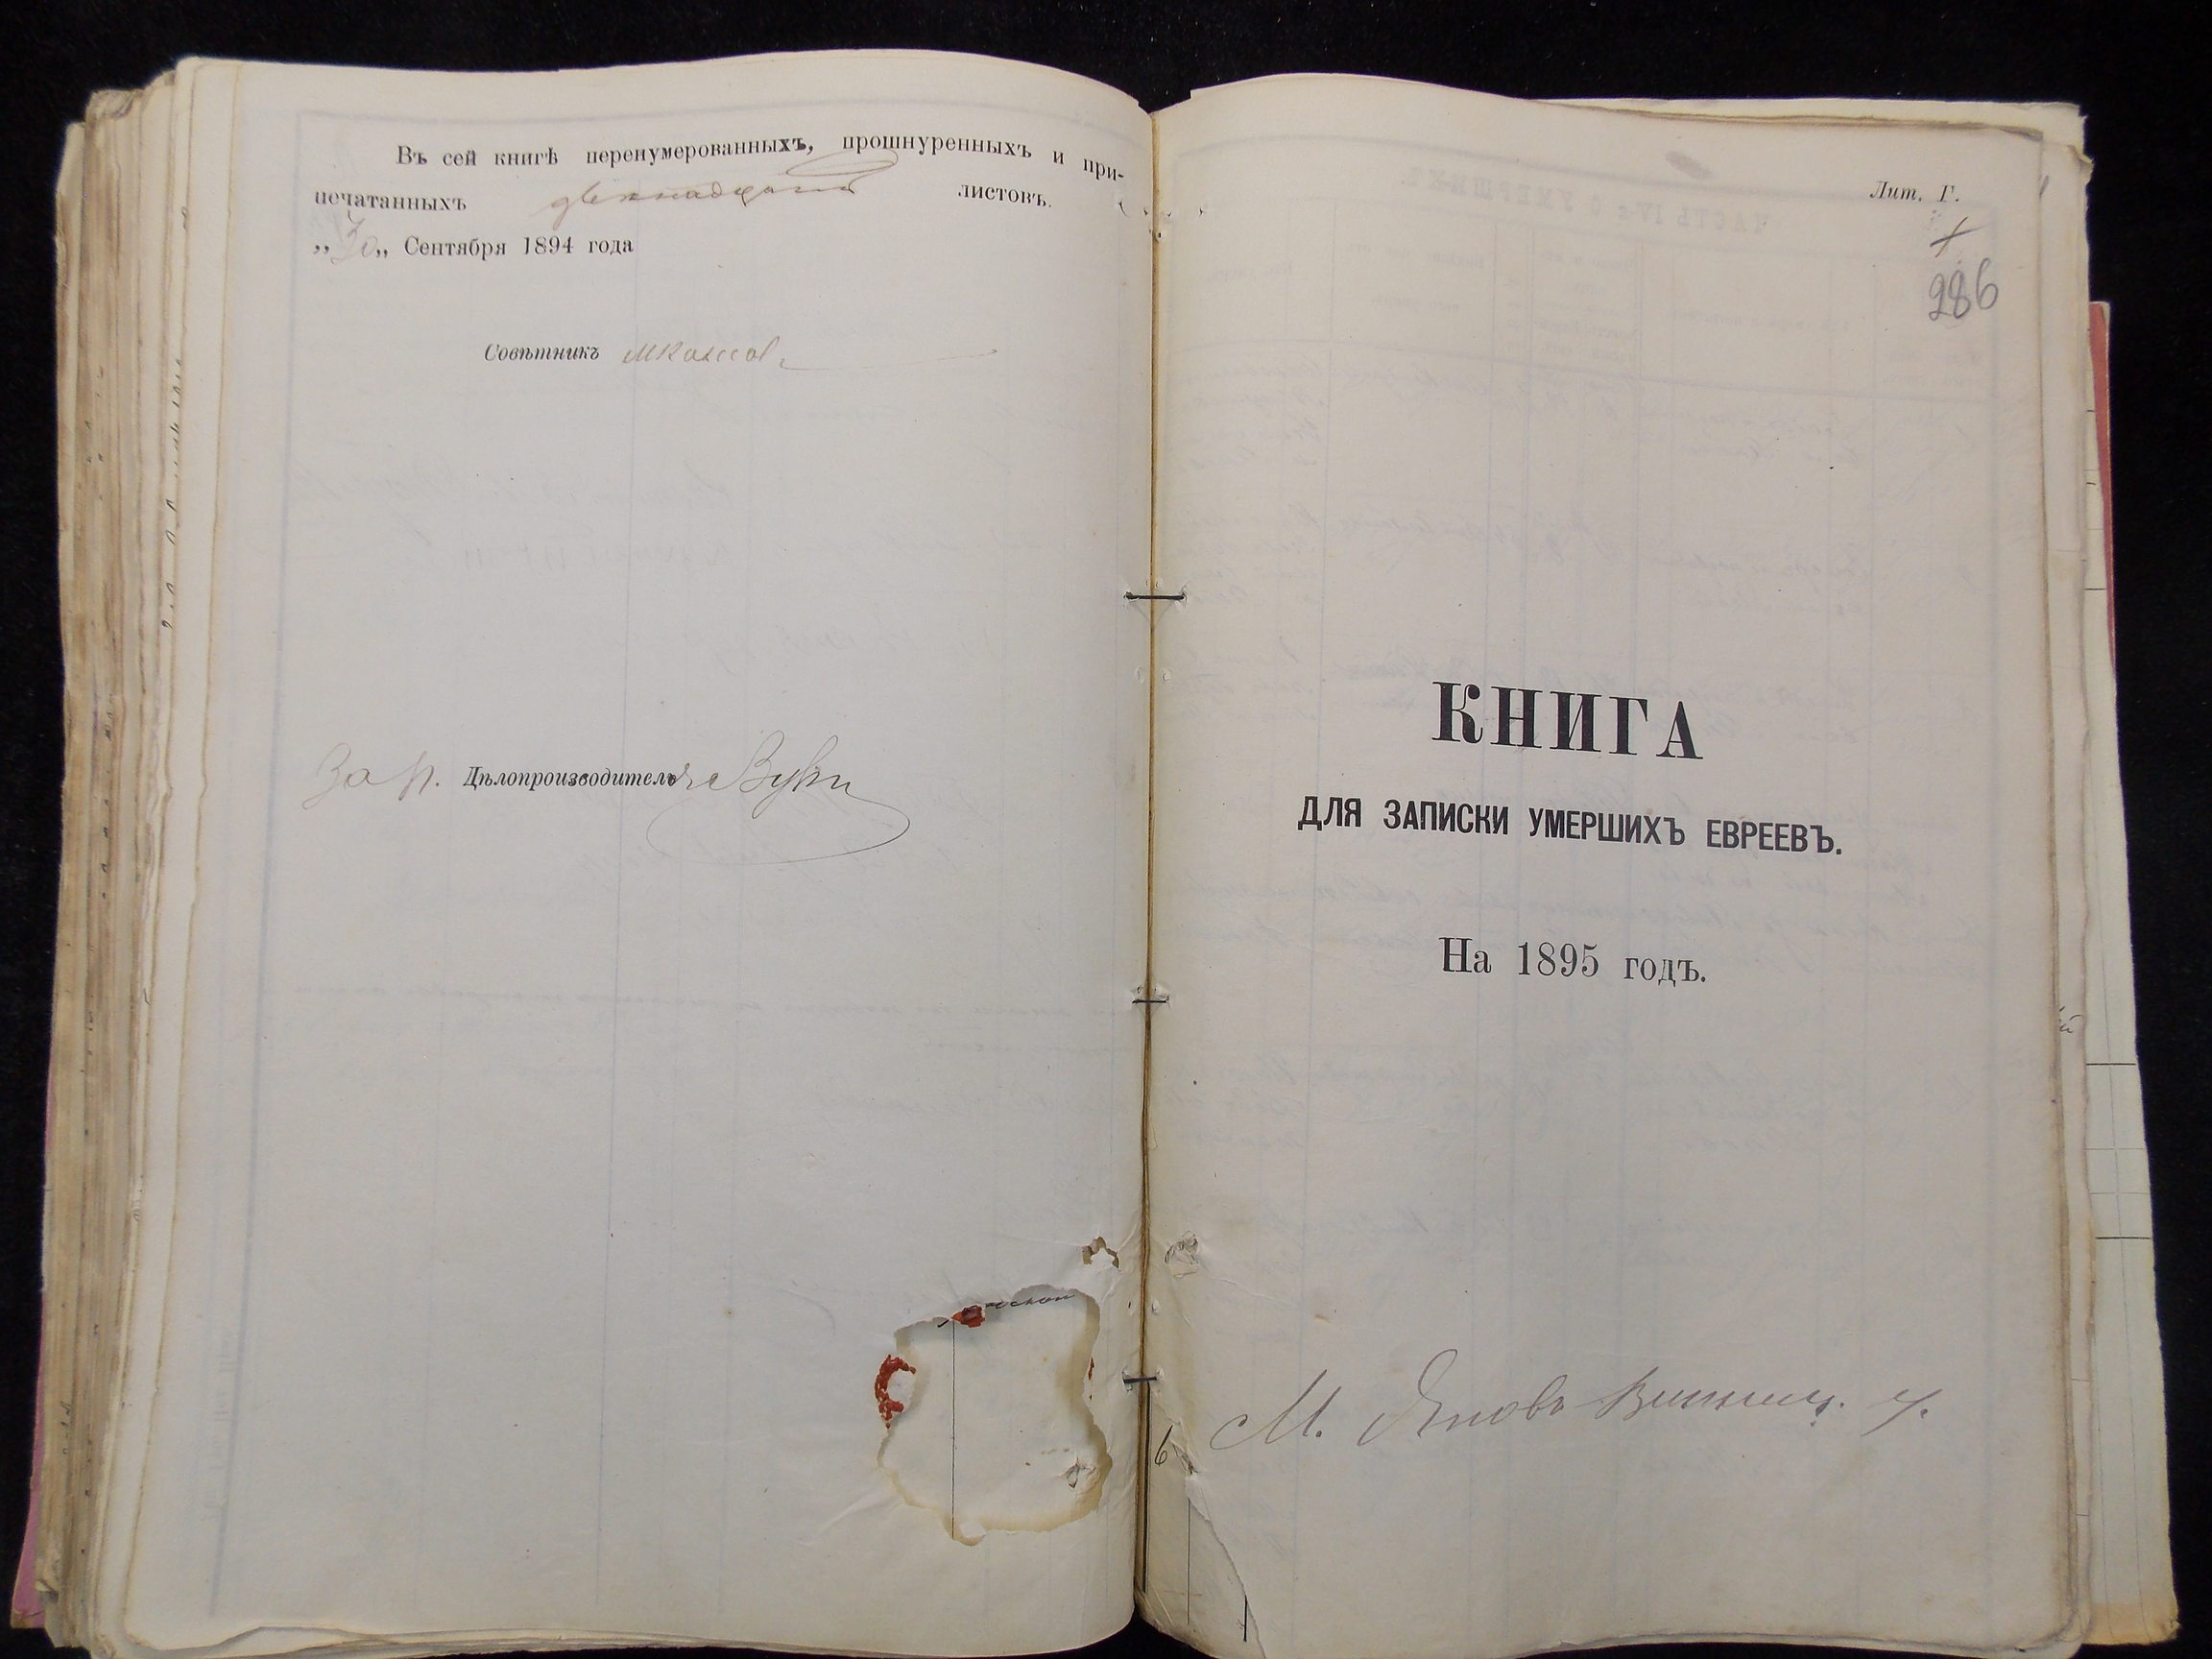 Въ сей книгѣ перенумерованныхъ, прошнуренныхъ и при-
печатанныхъ двенадцать листовъ.
„30„ Сентября 1894 года
Совѣтникъ
За Дѣлопроизводителя
Лит. Г.
286
КНИГА
ДЛЯ ЗАПИСКИ УМЕРШИХЪ ЕВРЕЕВЪ.
На 1895 годъ.
М. Яновъ Винниц. у.
6